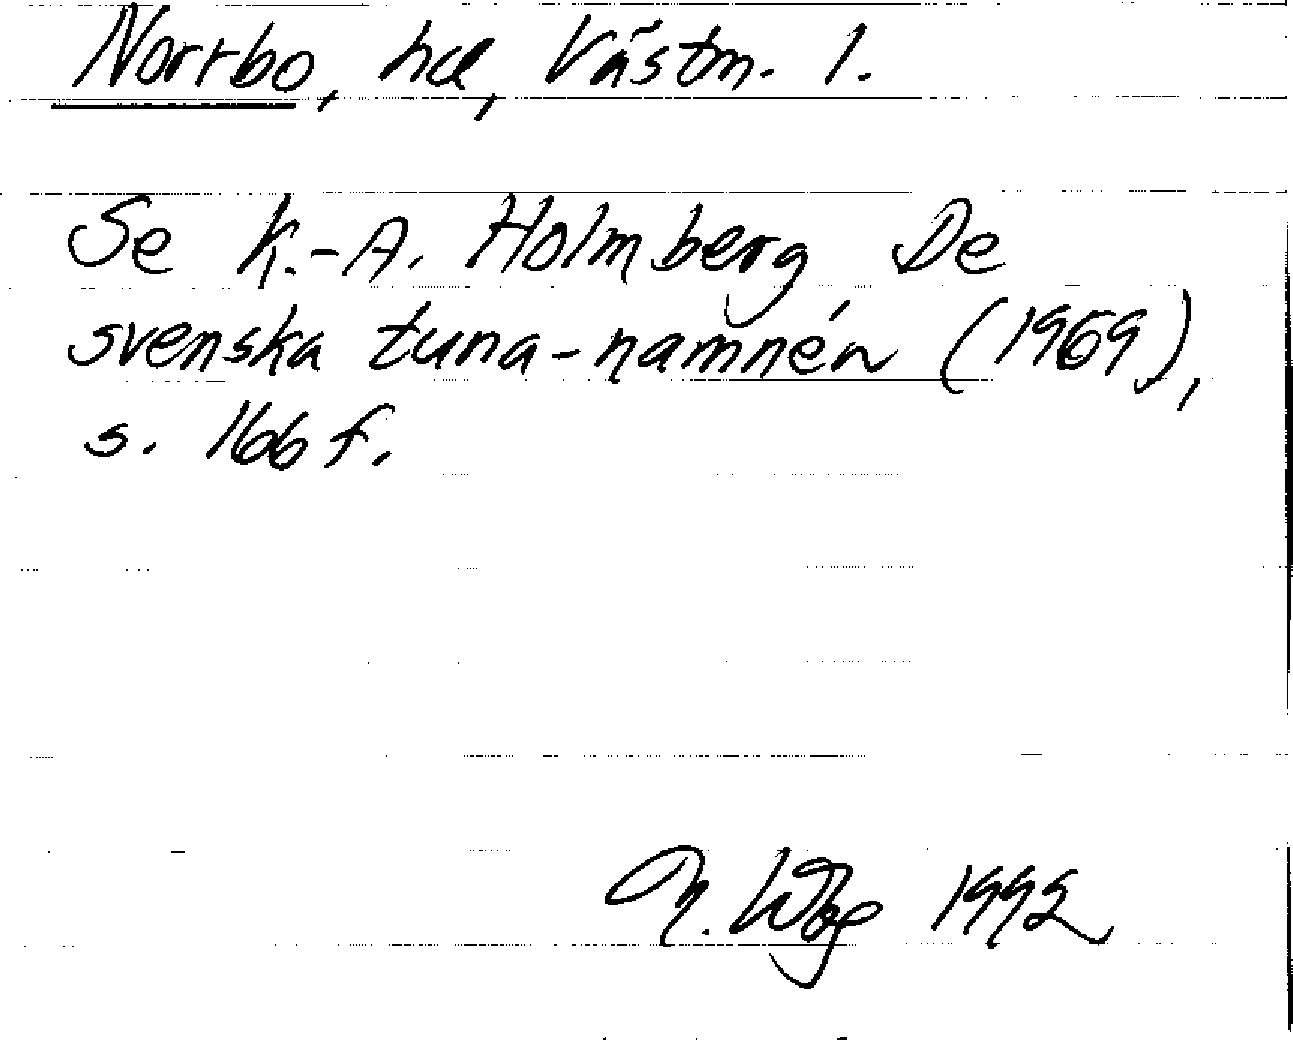 Norrbo, hd, Västm. l.
Se K.-A. Holmberg De
svenska tuna-namnén (1969),
s. 166 f.
M. Wbg 1992